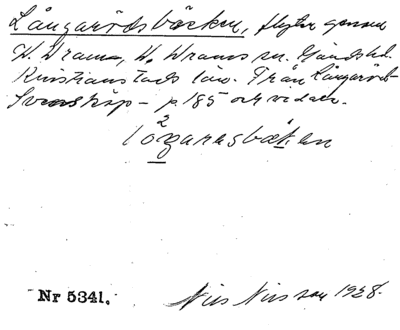 Långarödsbäcken, flyter genom
V. Vram, V. Vrams sn. Gärds hd.
Kristianstads län. Från Långaröd-
Svensköp – p. 185 och vidare.
lo²garasbäken
Nr 5341.
Nils Nilsson 1928.